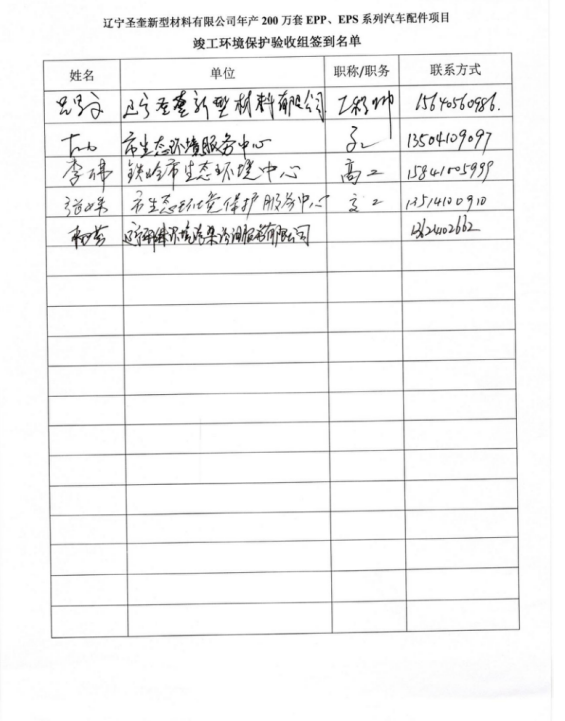 辽宁圣奎新型材料有限公司年产 200 万套 EPP、EPS 系列汽车配件项目
竣工环境保护验收组签到名单
姓名 单位 职称/职务 联系方式
辽宁圣奎新型材料有限公司 工程师 15640560986.
市生态环境服务中心 13504109097
李伟 铁岭市生态环境中心 高工 15841005999
市生态环境保护服务中心 高工 13514100910
有限公司